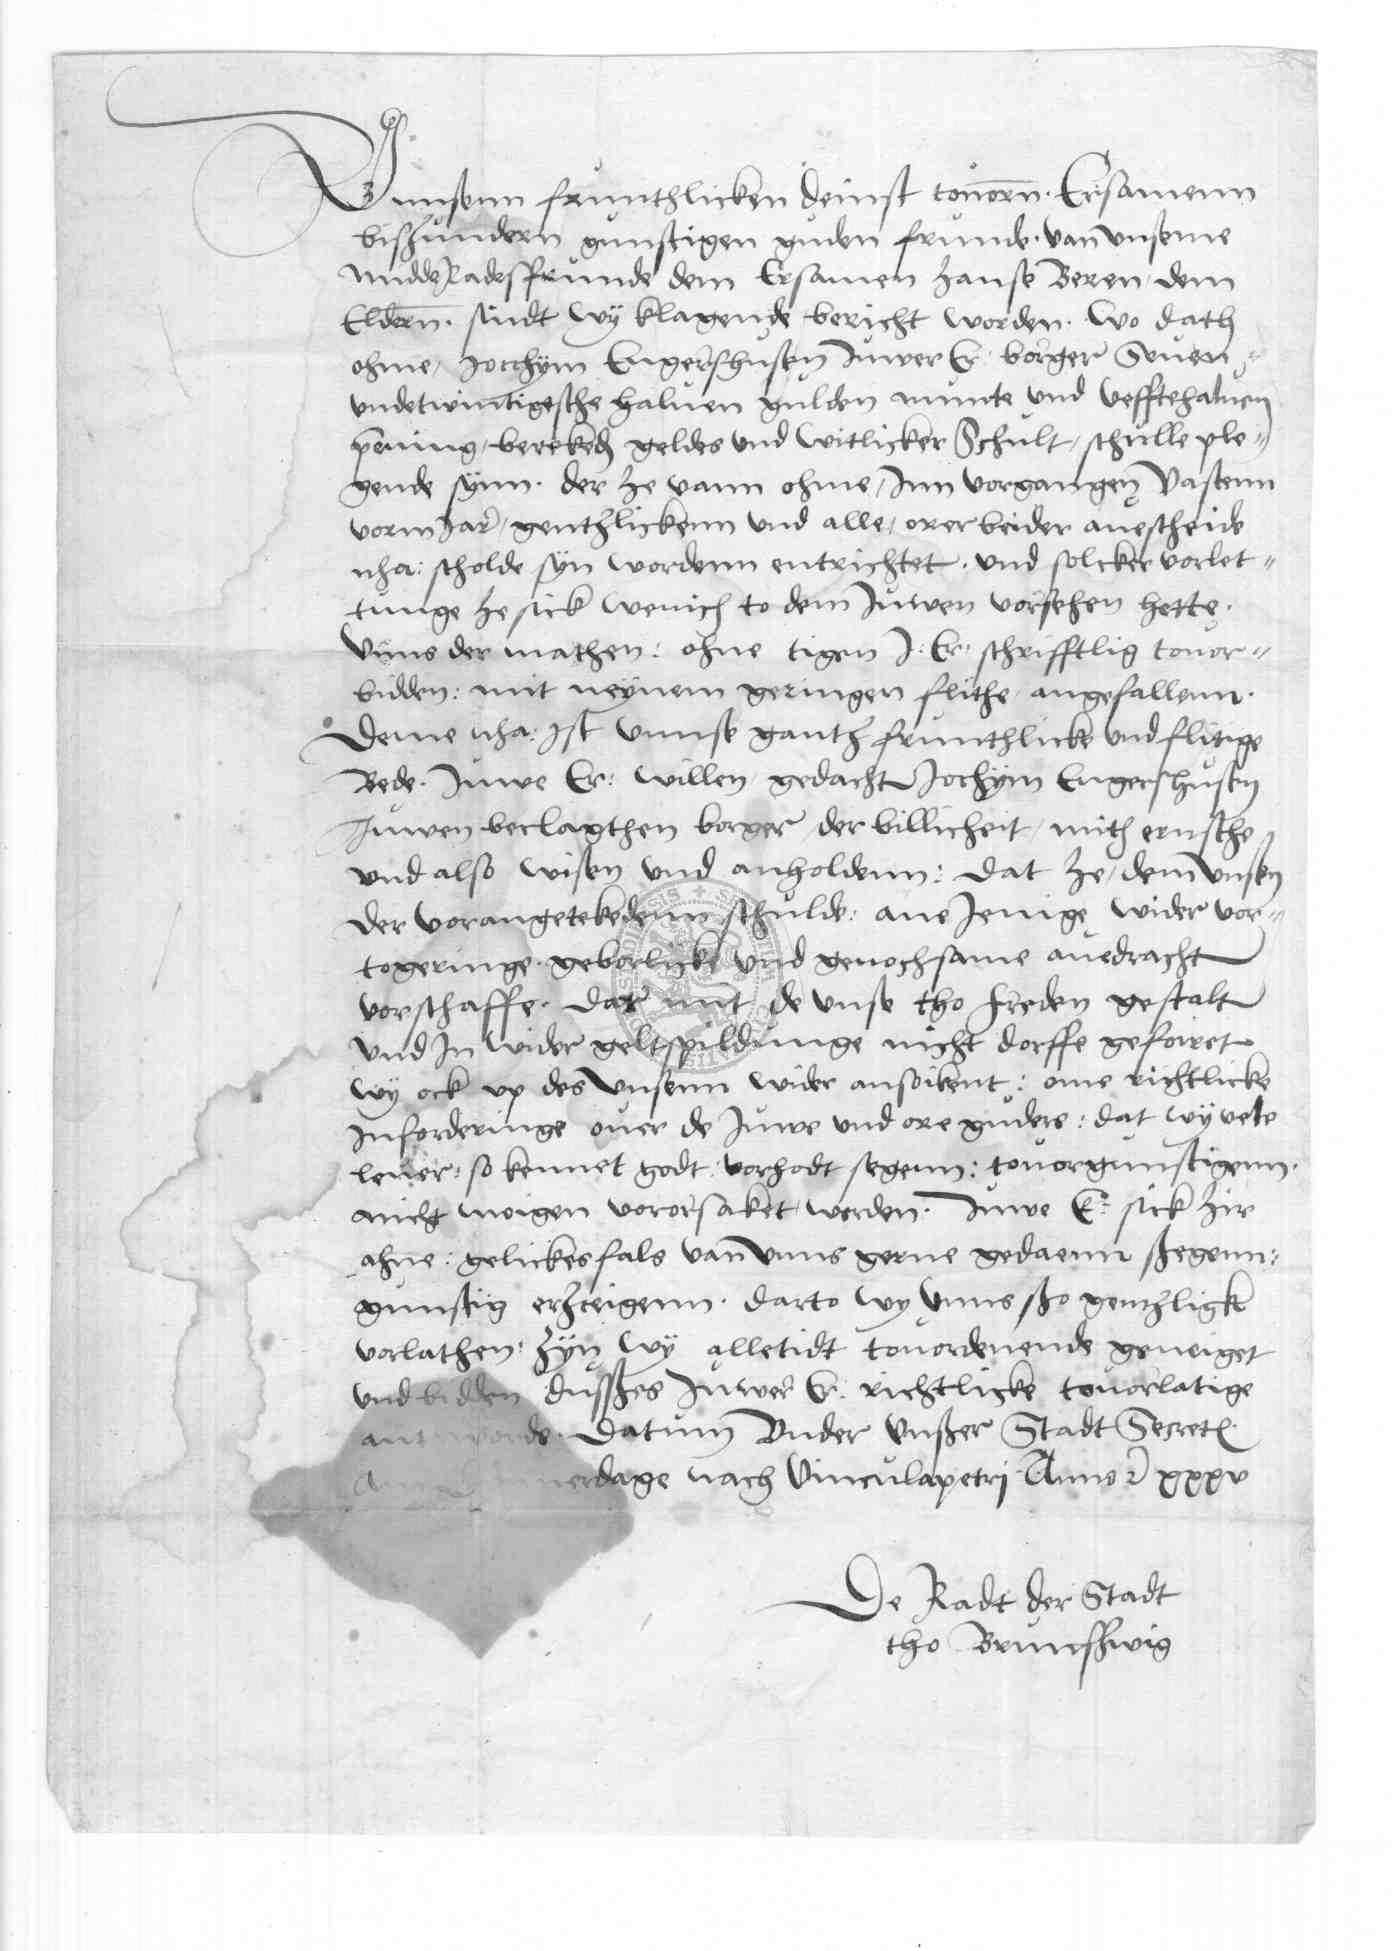 Unnsenn frunthlicken deinst touorn. Ersamenn
biszundern gunstigen guden frunde. van vnseme
midde Radesfrunde dem Ersamen Hanse Beren dem
Eldern. sindt wÿ klagende bericht worden. wo dath
ohme, Jochÿm Engershusen Juwer Er. borger Seuen
vndetwintigesthe haluen gulden munte vnd vefftehaluen
penning, berekedes geldes vnd witlicker Schult, schulle ple=
gende sÿnn. der he vann ohme, Inn vorgangen Vastenn
vorm Jar, gentzlickenn vnd alle, orer beider auescheide
nha: scholde sÿn wordenn entrichtet. vnd solcker vorlet=
tunge he sick wenich to dem Juwen vorsehen hette.
Vnns der mathen: ohne tigen J: Er: schrifftlig touor=
bidden: mit neÿnem geringen flithe angefallenn.
Deme nha: Ist vnnse gantz frunthlicke vnd flitige
Bede. Juwe Er: willen gedacht Jochÿm Engershusen
Juwen beclagthen borger, der billicheit, mith ernsthe
vnd also wisen vnd anholdenn: dat he, dem vnsen
der vorangetekedenn schulde: ane Jenige wider vor=
togeringe. geborlicke vnd genochsame auedracht
vorschaffe. dar mit de vnse tho freden gestalt
vnd In wider geltspildunge nicht dorffe gefoiret
wÿ ock vp des vnsenn wider ansoikent: ome richtlicke
Inforderinge ouer de Juwe vnd ore guders: dat wÿ vele
leuer: so kennet godt vorhodt segenn: touorgunstigenn.
nicht moigen vororsaket werden. Juwe E: sick hir
ahne: gelickesfals van vnns gerne gedaenn szegenn:
gunstig ertzeigenn. darto wÿ vnns szo gentzligk
vorlathen: Zÿn wÿ alletidt touordenende geneiget
vnd bidden dusszes Juwer Er. richtlicke touorlatige
ant worde. Datum Vnder vnszer Stadt Secret.
nerdage nach Vincula petri Anno xxxv
De Radt der Stadt
tho Brunszwig